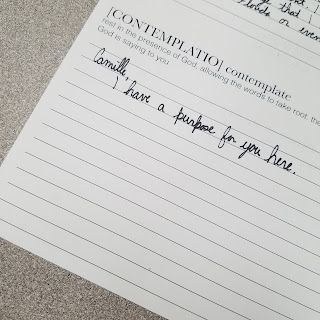 that I
clouds or even
[CONTEMPLATIO] contemplate
rest in the presence of God, allowing the words to take root. the
God is saying to you
Camille,
I have a purpose for you here.